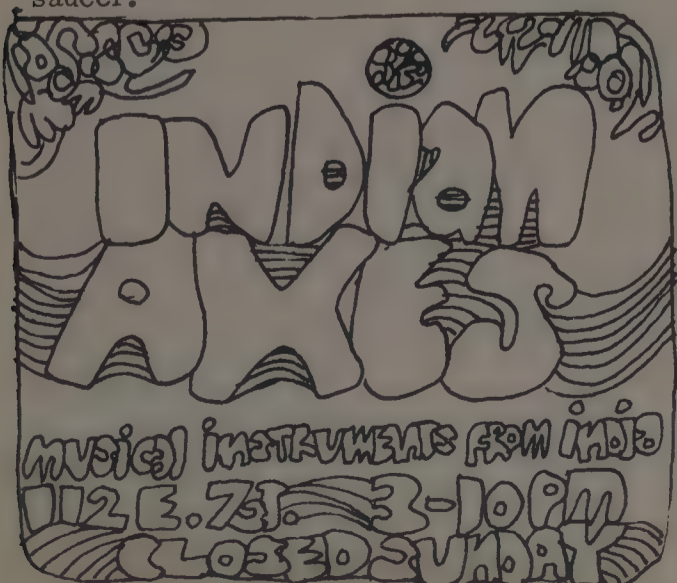 saucer.
INDiaN
AXES
MUSiCal iNSTRUMENTS FROM iNDia
112 E. 7ST. 3-10 PM
CLOSED SUNDAY